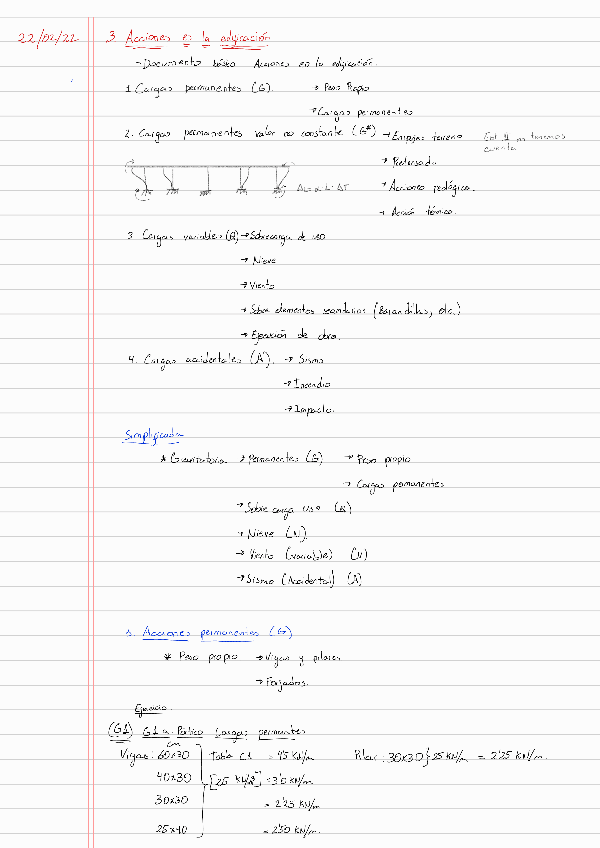 22/02/22 3 Acciones en la edificación
→Documento básico Acciones en la edificación.
1. Cargas permanentes (G). → Peso Propio
→Cargas permanentes
2. Cargas permanentes valor no constante (G*) → Empujes terreno Est 4 no tenemos
cuenta
→ Pretensado
ΔL=α·L·ΔT → Acciones reológica.
→ Acción térmica.
3. Cargas variables (Q) → Sobrecarga de uso
→ Nieve
→ Viento
→ Sobre elementos secundarios (Barandillas, etc.)
→ Ejecución de obra.
4. Cargas accidentales (A). → Sismo
→ Incendio
→ Impacto.
Simplificada
* Gravitatoria → Permanentes (G) → Peso propio
→ Cargas permanentes
→ Sobre carga uso (Q)
→ Nieve (N)
→ Viento (variable) (V)
→ Sismo (Accidental) (A)
1. Acciones permanentes (G)
* Peso propio → Vigas y pilares
→ Forjados.
Ejercicio.
(G1) G1 a Pórtico Cargas permantes
cm
Vigas: 60x30 Tabla C1 = 4'5 KN/m Pilar: 30x30} 25 KN/m = 2'25 KN/m.
40x30 [25 KN/m³] = 3'0 KN/m
30x30 = 2'25 KN/m
25x40 = 2'50 KN/m.